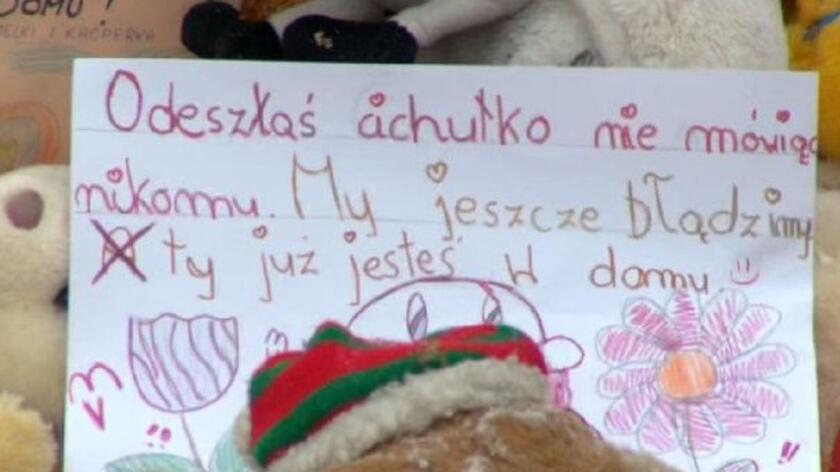 DOMU!
I KACPERKA
Odeszłaś cichutko nie mówiąc
nikomu. My jeszcze błądzimy
ty już jesteś w domu